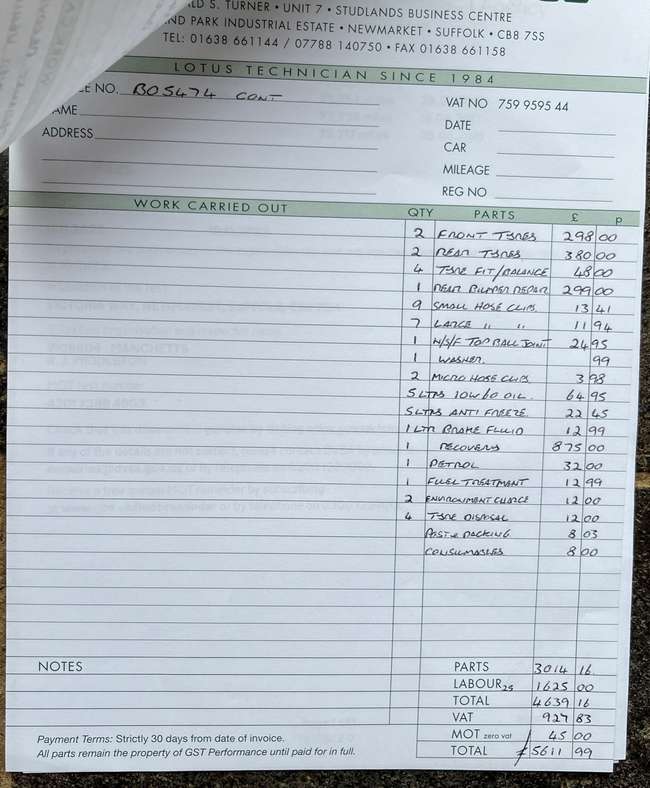 LD S. TURNER • UNIT 7 • STUDLANDS BUSINESS CENTRE
ND PARK INDUSTRIAL ESTATE • NEWMARKET • SUFFOLK • CB8 7SS
TEL: 01638 661144 / 07788 140750 • FAX 01638 661158
LOTUS TECHNICIAN SINCE 1984
E NO. BOS474 CONT
VAT NO 759 9595 44
AME
DATE
ADDRESS
CAR
MILEAGE
REG NO
WORK CARRIED OUT QTY PARTS £ p
2 FRONT TYRES 298 00
2 REAR TYRES 380 00
4 TYRE FIT/BALANCE 48 00
1 REAR BUMPER REPAIR 299 00
9 SMALL HOSE CLIPS. 13 41
7 LARGE " " 11 94
1 N/S/F TOP BALL JOINT 24 95
1 WASHER. 99
2 MICRO HOSE CLIPS 3 98
5 LTRS 10W60 OIL. 64 95
5 LTRS ANTI FREEZE. 22 45
1 LTR BRAKE FLUID 12 99
1 RECOVERY 875 00
1 PETROL 32 00
1 FUEL TREATMENT 12 99
2 ENVIRONMENT CHARGE 12 00
4 TYRE DISPOSAL 12 00
POST & PACKING 8 03
CONSUMABLES 8 00
NOTES
PARTS 3014 16
LABOUR 25 1625 00
TOTAL 4639 16
VAT 927 83
MOT zero vat 45 00
TOTAL £5611 99
Payment Terms: Strictly 30 days from date of invoice.
All parts remain the property of GST Performance until paid for in full.